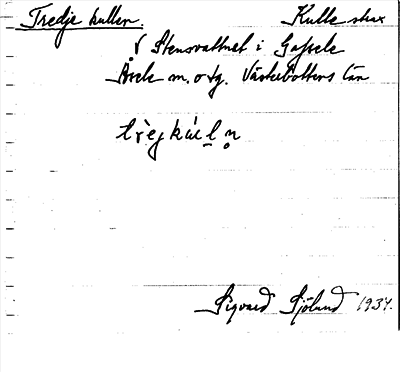 Tredje kullen. Kulle strax
V Stensvattnet i Gafsele
Åsele m. o tg. Västerbottens län
trèjkúl̠n̥
Sigvard Sjölund 1934.